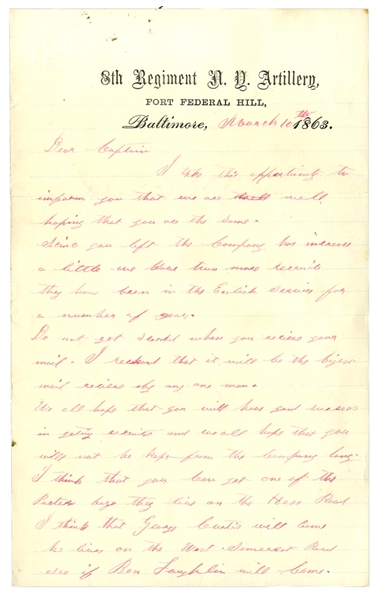 8th Regiment N. Y. Artillery,
FORT FEDERAL HILL,
Baltimore, March 10th 1863.
Dear Captain
I take this opportunity to
inform you that we are well
hoping that you are the same.
Since you left the Company has increase
a little we have two more recruits
they have been in the English Service for
a number of years.
Do not get scared when you recieve your
mail. I reckont that it will be the bigest
mail recieved by any one man.
We all hope that you will have good success
in geting recruits and we all hope that you
will not be kept from the Company long.
I think that you can get one of the
boys they live on the Hess Road
I think that George Curtis will come
he lives on the West Somerset Road
see if Ben Laughlin will Come.